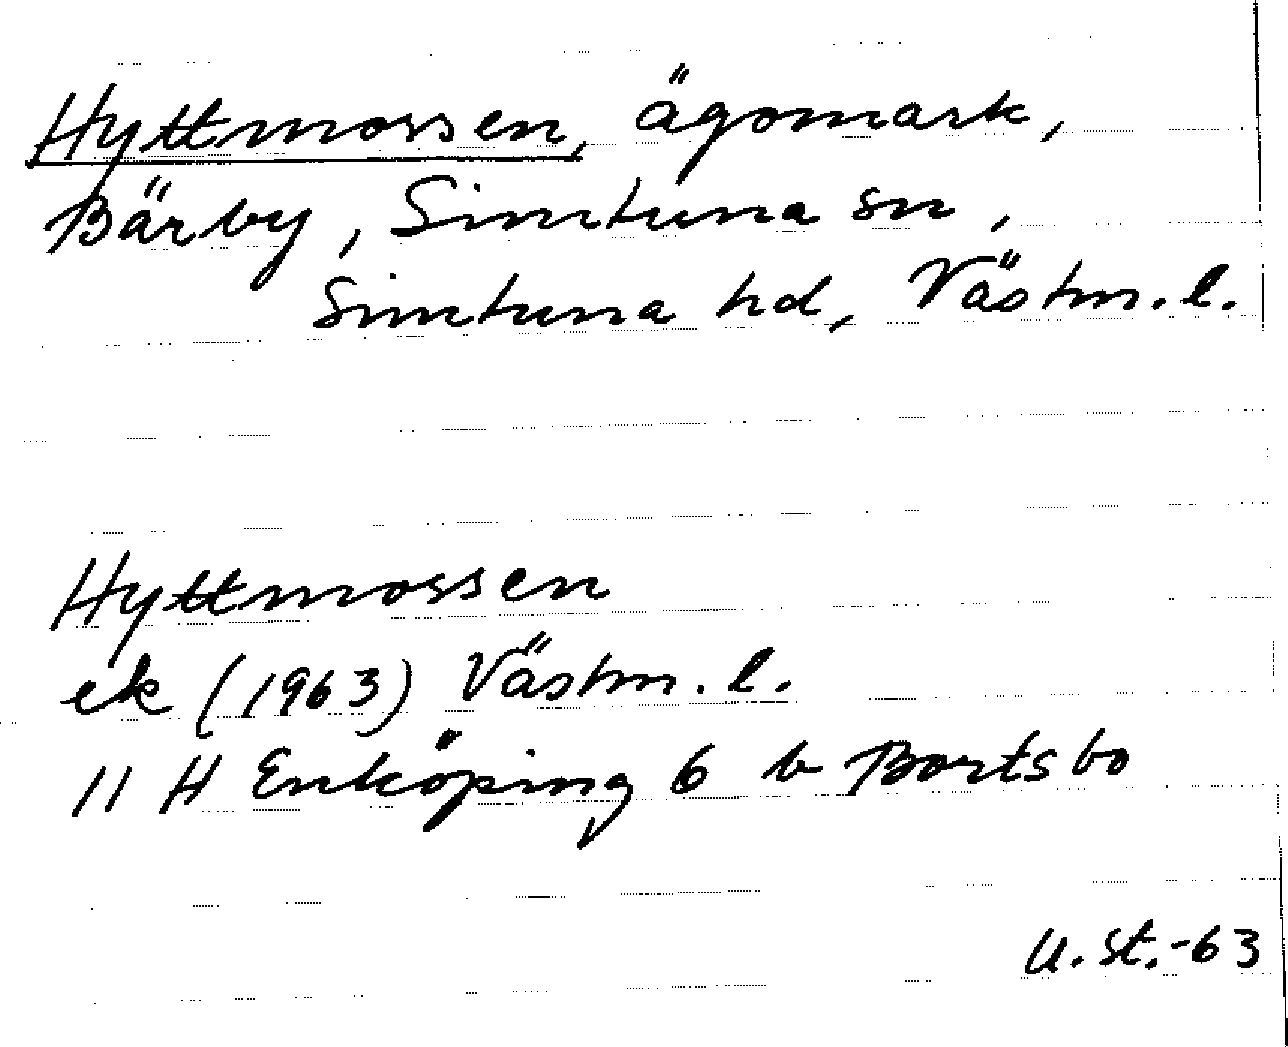 Hyttmossen, ägomark,
Bärby, Simtuna sn,
Simtuna hd, Västm. l.
Hyttmossen
ek (1963) Västm. l.
11 H Enköping 6 b Bortsbo
U. St. -63